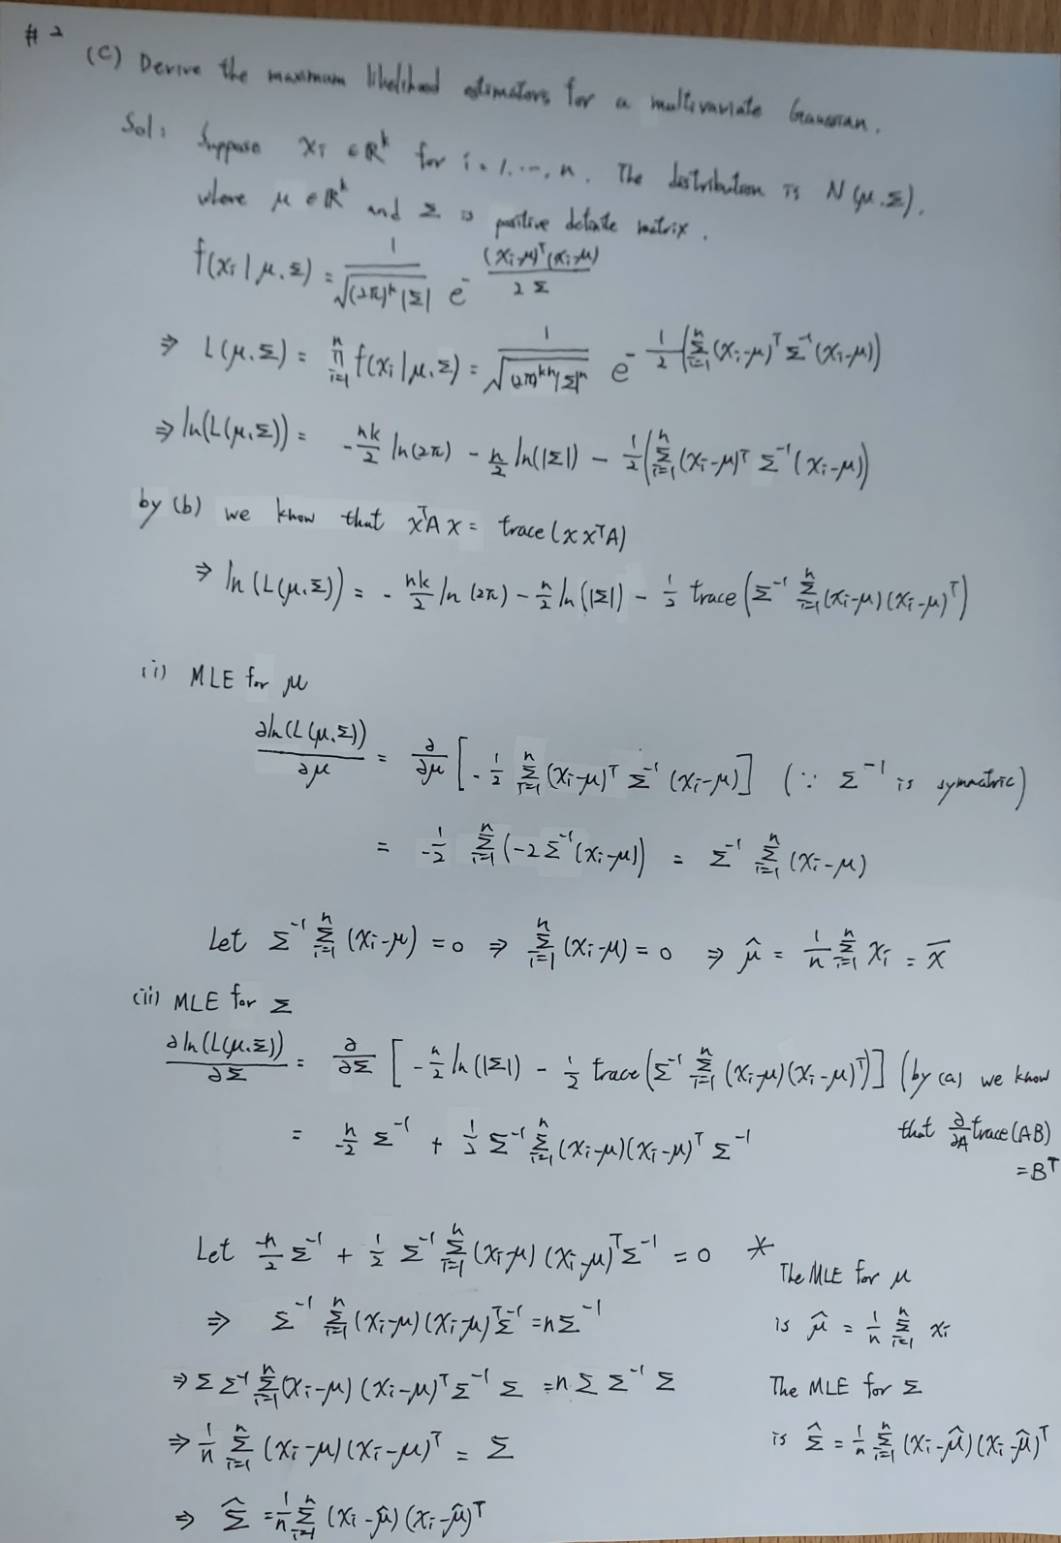 #2
(C) Derive the maximum likelihood estimators for a multivariate Gaussian.
Sol: Suppose xi ∈ ℝ^k for i = 1, ..., n. The distribution is N(μ, Σ),
where μ ∈ ℝ^k and Σ is positive definite matrix.
f(xi | μ, Σ) = 1/√((2π)^k |Σ|) e^-((xi-μ)^T (xi-μ))/(2Σ)
⇒ L(μ, Σ) = ∏_{i=1}^n f(xi | μ, Σ) = 1/√((2π)^{kn} |Σ|^n) e^{-1/2 (Σ_{i=1}^n (xi-μ)^T Σ^-1 (xi-μ))}
⇒ ln(L(μ, Σ)) = -nk/2 ln(2π) - n/2 ln(|Σ|) - 1/2 (Σ_{i=1}^n (xi-μ)^T Σ^-1 (xi-μ))
by (b) we know that x^T A x = trace(x x^T A)
⇒ ln(L(μ, Σ)) = -nk/2 ln(2π) - n/2 ln(|Σ|) - 1/2 trace(Σ^-1 Σ_{i=1}^n (xi-μ)(xi-μ)^T)
(i) MLE for μ
∂ln(L(μ, Σ))/∂μ = ∂/∂μ [-1/2 Σ_{i=1}^n (xi-μ)^T Σ^-1 (xi-μ)] (∵ Σ^-1 is symmatric)
= -1/2 Σ_{i=1}^n (-2 Σ^-1 (xi-μ)) = Σ^-1 Σ_{i=1}^n (xi-μ)
Let Σ^-1 Σ_{i=1}^n (xi-μ) = 0 ⇒ Σ_{i=1}^n (xi-μ) = 0 ⇒ μ̂ = 1/n Σ_{i=1}^n xi = x̄
(ii) MLE for Σ
∂ln(L(μ, Σ))/∂Σ = ∂/∂Σ [-n/2 ln(|Σ|) - 1/2 trace(Σ^-1 Σ_{i=1}^n (xi-μ)(xi-μ)^T)] (by (a) we know
that ∂/∂A trace(AB)
= B^T
= -n/2 Σ^-1 + 1/2 Σ^-1 Σ_{i=1}^n (xi-μ)(xi-μ)^T Σ^-1
Let -n/2 Σ^-1 + 1/2 Σ^-1 Σ_{i=1}^n (xi-μ)(xi-μ)^T Σ^-1 = 0
⇒ Σ^-1 Σ_{i=1}^n (xi-μ)(xi-μ)^T Σ^-1 = n Σ^-1
⇒ Σ Σ^-1 Σ_{i=1}^n (xi-μ)(xi-μ)^T Σ^-1 Σ = n Σ Σ^-1 Σ
⇒ 1/n Σ_{i=1}^n (xi-μ)(xi-μ)^T = Σ
⇒ Σ̂ = 1/n Σ_{i=1}^n (xi-μ̂)(xi-μ̂)^T
* The MLE for μ
is μ̂ = 1/n Σ_{i=1}^n xi
The MLE for Σ
is Σ̂ = 1/n Σ_{i=1}^n (xi-μ̂)(xi-μ̂)^T